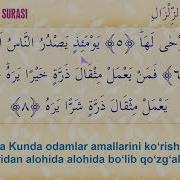 SURASI
الزِّلْزَالِ
حَىٰ لَهَا ﴿٥﴾ يَوْمَئِذٍ يَصْدُرُ النَّاسُ
﴿٦﴾ فَمَن يَعْمَلْ مِثْقَالَ ذَرَّةٍ خَيْرًا يَرَهُ
يَعْمَلْ مِثْقَالَ ذَرَّةٍ شَرًّا يَرَهُ ﴿٨﴾
a Kunda odamlar amallarini ko'rish
ridan alohida alohida bo'lib qo'zg'al